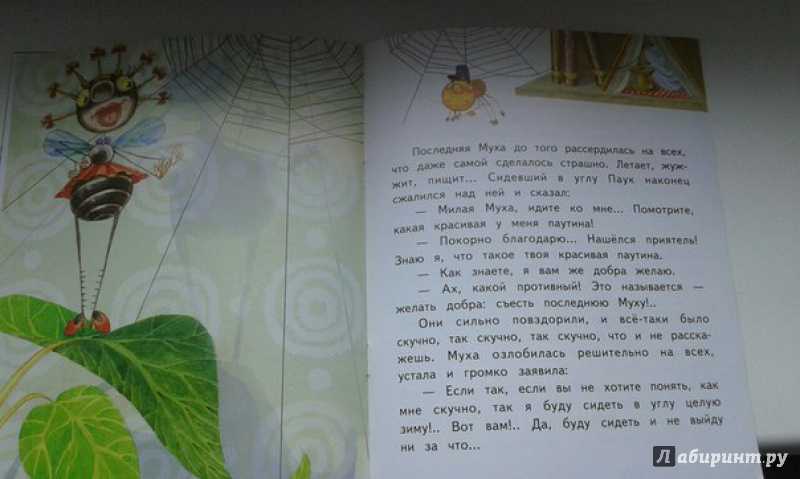 Последняя Муха до того рассердилась на всех,
что даже самой сделалось страшно. Летает, жуж-
жит, пищит... Сидевший в углу Паук наконец
сжалился над ней и сказал:
— Милая Муха, идите ко мне... Посмотрите,
какая красивая у меня паутина!
— Покорно благодарю... Нашёлся приятель!
Знаю я, что такое твоя красивая паутина.
— Как знаете, я вам же добра желаю.
— Ах, какой противный! Это называется —
желать добра: съесть последнюю Муху!..
Они сильно повздорили, и всё-таки было
скучно, так скучно, так скучно, что и не расска-
жешь. Муха озлобилась решительно на всех,
устала и громко заявила:
— Если так, если вы не хотите понять, как
мне скучно, так я буду сидеть в углу целую
зиму!.. Вот вам!.. Да, буду сидеть и не выйду
ни за что...
Лабиринт.ру